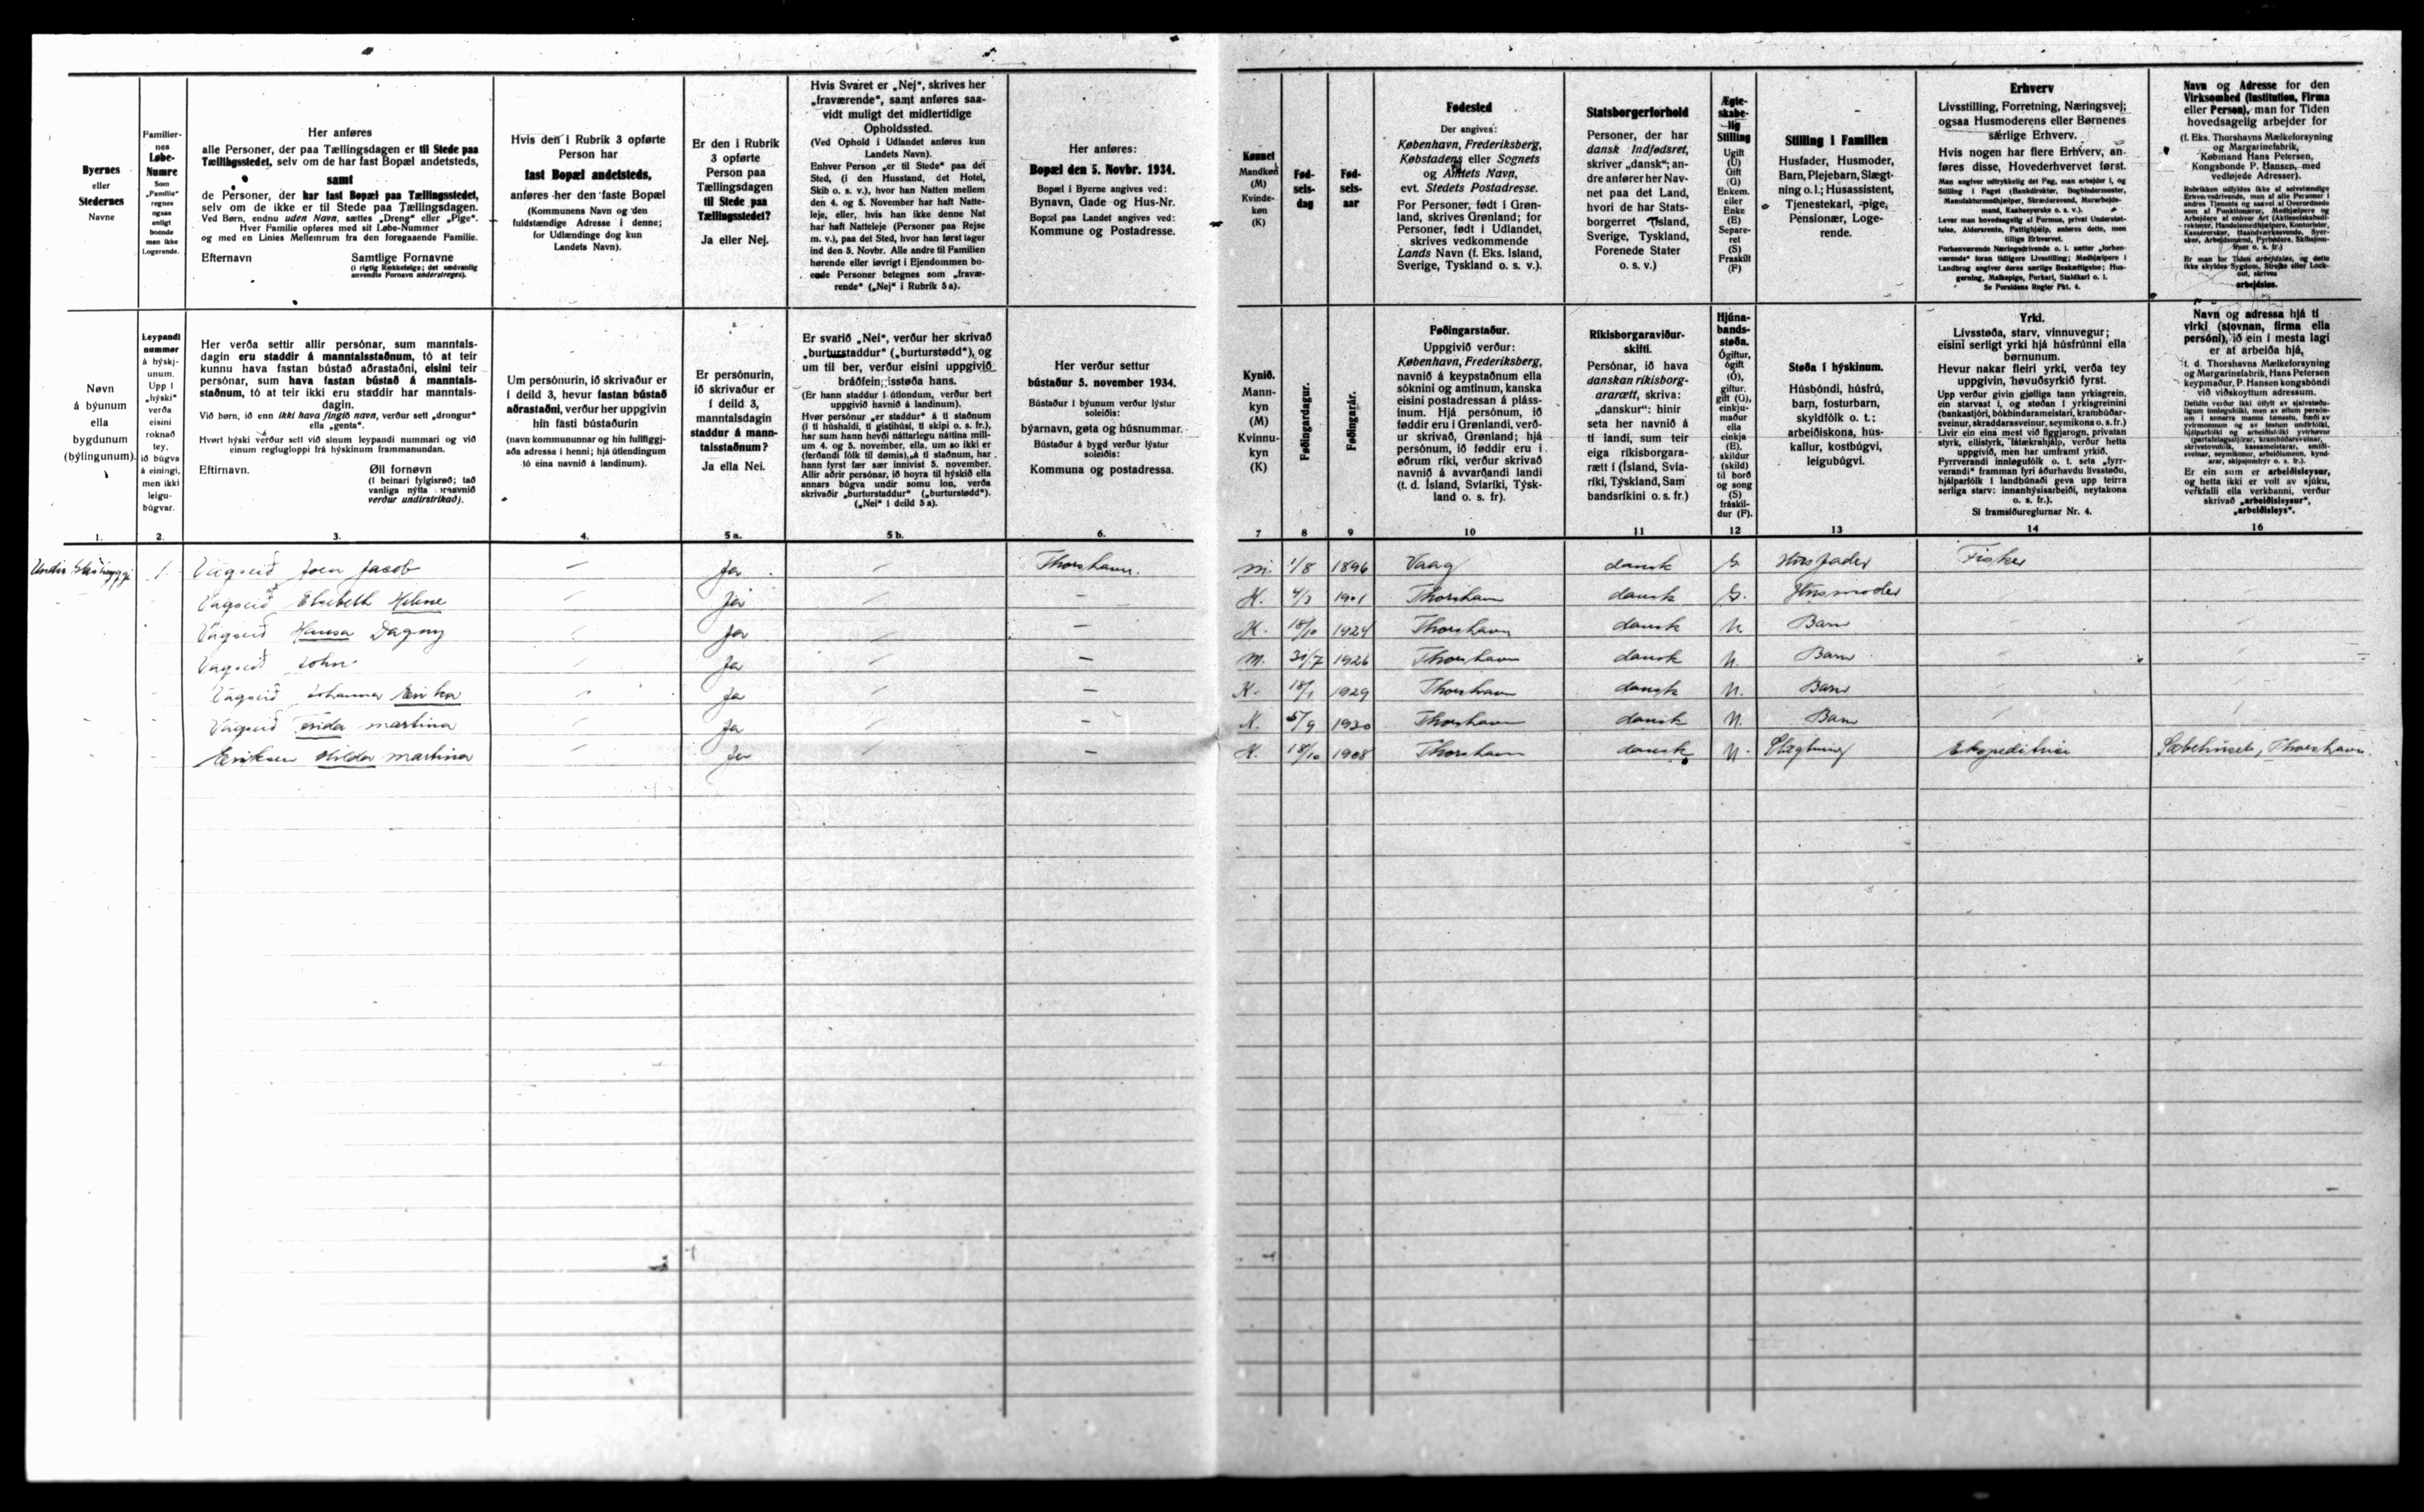 Byernes
eller
Stedernes
Navne
Familier-
nes
Løbe-
Numre
Som
„Familie"
regnes
ogsaa
enligt
boende
men ikke
Logerende.
Her anføres
alle Personer, der paa Tællingsdagen er til Stede paa
Tællingsstedet, selv om de har fast Bopæl andetsteds,
samt
de Personer, der har fast Bopæl paa Tællingsstedet,
selv om de ikke er til Stede paa Tællingsdagen.
Ved Børn, endnu uden Navn, sættes „Dreng" eller „Pige".
Hver Familie opføres med sit Løbe-Nummer
og med en Linies Mellemrum fra den foregaaende Familie.
Efternavn Samtlige Fornavne
(i rigtig Rækkefølge; det sædvanlig
anvendte Fornavn understreges).
Hvis den i Rubrik 3 opførte
Person har
fast Bopæl andetsteds,
anføres her den faste Bopæl
(Kommunens Navn og den
fuldstændige Adresse i denne;
for Udlændinge dog kun
Landets Navn).
Er den i Rubrik
3 opførte
Person paa
Tællingsdagen
til Stede paa
Tællingsstedet?
Ja eller Nej.
Hvis Svaret er „Nej", skrives her
„fraværende", samt anføres saa-
vidt muligt det midlertidige
Opholdssted.
(Ved Ophold i Udlandet anføres kun
Landets Navn).
Enhver Person „er til Stede" paa det
Sted, (i den Husstand, det Hotel,
Skib o. s. v.), hvor han Natten mellem
den 4. og 5. November har haft Natte-
leje, eller, hvis han ikke denne Nat
har haft Natteleje (Personer paa Rejse
m. v.), paa det Sted, hvor han først tager
ind den 5. Novbr. Alle andre til Familien
hørende eller iøvrigt i Ejendommen bo-
ende Personer betegnes som „fravæ-
rende" („Nej" i Rubrik 5 a).
Her anføres:
Bopæl den 5. Novbr. 1934.
Bopæl i Byerne angives ved:
Bynavn, Gade og Hus-Nr.
Bopæl paa Landet angives ved:
Kommune og Postadresse.
Kønnet
Mandkøn
(M)
Kvinde-
køn
(K)
Fød-
sels-
dag
Fød-
sels-
aar
Fødested
Der angives:
København, Frederiksberg,
Købstadens eller Sognets
og Amtets Navn,
evt. Stedets Postadresse.
For Personer, født i Grøn-
land, skrives Grønland; for
Personer, født i Udlandet,
skrives vedkommende
Lands Navn (f. Eks. Island,
Sverige, Tyskland o. s. v.).
Statsborgerforhold
Personer, der har
dansk Indfødsret,
skriver „dansk"; an-
dre anfører her Nav-
net paa det Land,
hvori de har Stats-
borgerret Island,
Sverige, Tyskland,
Forenede Stater
o. s. v.)
Ægte-
skabe-
lig
Stilling
Ugift
(U)
Gift
(G)
Enkem.
eller
Enke
(E)
Separe-
ret
(S)
Fraskilt
(F)
Stilling i Familien
Husfader, Husmoder,
Barn, Plejebarn, Slægt-
ning o. l.; Husassistent,
Tjenestekarl, -pige,
Pensionær, Loge-
rende.
Erhverv
Livsstilling, Forretning, Næringsvej;
ogsaa Husmoderens eller Børnenes
særlige Erhverv.
Hvis nogen har flere Erhverv, an-
føres disse, Hovederhvervet først.
Man angiver udtrykkelig det Fag, man arbejder i, og
Stilling i Faget (Bankdirektør, Bogbindermester,
Manufakturmedhjælper, Skræddersvend, Murarbejds-
mand, Kaabesyerske o. s. v.).
Lever man hovedsagelig af Formue, privat Understøt-
telse, Aldersrente, Fattighjælp, anføres dette, men
tillige Erhvervet.
Forhenværende Næringsdrivende o. l. sætter „forhen-
værende" foran tidligere Livsstilling; Medhjælpere i
Landbrug angiver deres særlige Beskæftigelse; Hus-
gerning, Malkepige, Forkarl, Staldkarl o. l.
Se Forsidens Regler Pkt. 4.
Navn og Adresse for den
Virksomhed (Institution, Firma
eller Person), man for Tiden
hovedsagelig arbejder for
(f. Eks. Thorshavns Mælkeforsyning
og Margarinefabrik,
Købmand Hans Petersen,
Kongsbonde P. Hansen, med
vedføjede Adresser).
Er man for Tiden arbejdsløs, og dette
ikke skyldes Sygdom, Strejke eller Lock-
out, skrives
arbejdsløs.
Nøvn
á býunum
ella
bygdunum
(býlingunum).
Leypandi
nummer
á hýskj-
unum.
Upp í
„hýski"
verða
eisini
roknað
tey,
ið búgva
á einingi,
men ikki
leigu-
búgvar.
Her verða settir allir persónar, sum manntals-
dagin eru staddir á manntalsstaðnum, tó at teir
kunnu hava fastan bústað aðrastaðni, eisini teir
persónar, sum hava fastan bústað á manntals-
staðnum, tó at teir ikki eru staddir har manntals-
dagin.
Við børn, ið enn ikki hava fingið navn, verður sett „drongur"
ella „genta".
Hvørt hýski verður sett við sínum leypandi nummari og við
einum reglugloppi frá hýskinum frammanundan.
Efternavn. Øll fornøvn
(í beinari fylgisrøð; tað
vanliga nýtta fornavnið
verður undirstrikað).
Um persónurin, ið skrivaður er
í deild 3, hevur fastan bústað
aðrastaðni, verður her uppgivin
hin fasti bústaðurin
(navn kommununnar og hin fullfíggj-
aða adressa í henni; hjá útlendingum
tó eina navnið á landinum).
Er persónurin,
ið skrivaður er
í deild 3,
manntalsdagin
staddur á mann-
talsstaðnum?
Ja ella Nei.
Er svarið „Nei", verður her skrivað
„burturstaddur" („burturstødd"), og
um til ber, verður eisini uppgivið
bráðfeingisstøða hans.
(Er hann staddur í útlondum, verður bert
uppgivið navnið á landinum).
Hvør persónur „er staddur" á tí staðnum
(í tí húshaldi, tí gistihúsi, tí skipi o. s. fr.),
har sum hann hevði náttarlegu náttina mill-
um 4. og 5. november, ella, um so ikki er
(ferðandi fólk til dømis), á tí staðnum, har
hann fyrst fær sær innivist 5. november.
Allir aðrir persónar, ið hoyra til hýskið ella
annars búgva undir somu lon, verða
skrivaðir „burturstaddur" („burturstødd").
(„Nei" í deild 5 a).
Her verður settur
bústaður 5. november 1934.
Bústaður í býunum verður lýstur
soleiðis:
býarnavn, gøta og húsnummar.
Bústaður á bygd verður lýstur
soleiðis:
Kommuna og postadressa.
Kynið.
Mann-
kyn
(M)
Kvinnu-
kyn
(K)
Føðingardagur.
Føðingarár.
Føðingarstaður.
Uppgivið verður:
København, Frederiksberg,
navnið á keypstaðnum ella
sóknini og amtinum, kanska
eisini postadressan á pláss-
inum. Hjá persónum, ið
føddir eru í Grønlandi, verð-
ur skrivað, Grønland; hjá
persónum, ið føddir eru í
øðrum ríki, verður skrivað
navnið á avvarðandi landi
(t. d. Ísland, Svíaríki, Týsk-
land o. s. fr).
Ríkisborgaraviður-
skifti.
Persónar, ið hava
danskan ríkisborg-
ararætt, skriva:
„danskur": hinir
seta her navnið á
tí landi, sum teir
eiga ríkisborgara-
rætt í (Ísland, Svía-
ríki, Týskland, Sam
bandsríkini o. s. fr.)
Hjúna-
bands-
støða.
Ógiftur,
ógift
(Ó),
giftur.
gift (G),
einkju-
maður
ella
einkja
(E),
skildur
(skild)
til borð
og song
(S)
fráskil-
dur (F).
Støða í hýskinum.
Húsbóndi, húsfrú,
barn, fosturbarn,
skyldfólk o. t.;
arbeiðiskona, hús-
kallur, kostbúgvi,
leigubúgvi.
Yrki.
Lívsstøða, starv, vinnuvegur;
eisini serligt yrki hjá húsfrúnni ella
børnunum.
Hevur nakar fleiri yrki, verða tey
uppgivin, høvuðsyrkið fyrst.
Sí framsíðureglurnar Nr. 4.
Navn og adressa hjá tí
virki (stovnan, firma ella
persóni), ið ein í mesta lagi
er at arbeiða hjá,
(t. d. Thorshavns Mælkeforsyning
og Margarinefabrik, Hans Petersen
keypmaður, P. Hansen kongsbóndi
við viðskoyttum adressum.
Er ein sum er arbeiðisleysur,
og hetta ikki er volt av sjúku,
verkfalli ella verkbanni, verður
skrivað „arbeiðisleysur",
„arbeiðisleys".
1. 2. 3. 4. 5 a. 5 b. 6. 7 8 9 10 11 12 13 14 16
1. Vágseið Joen Jacob Ja Thorshavn. M. 1/8 1896 Vaag dansk G. Husfader Fisker
Vágseið Elsebeth Helene Ja K. 4/3 1901 Thorshavn dansk G. Husmoder
Vágseið Hansa Dagny Ja K. 18/10 1924 Thorshavn dansk U. Barn
Vágseið John Ja M. 31/7 1926 Thorshavn dansk U. Barn
Vágseið Johanna Erika Ja K. 18/1 1929 Thorshavn dansk U. Barn
Vágseið Frida Martina Ja K. 5/9 1930 Thorshavn dansk U. Barn
Eriksen Hilda Martina Ja K. 18/10 1908 Thorshavn dansk U. Slægtning Ekspeditrice Sæbehuset, Thorshavn.